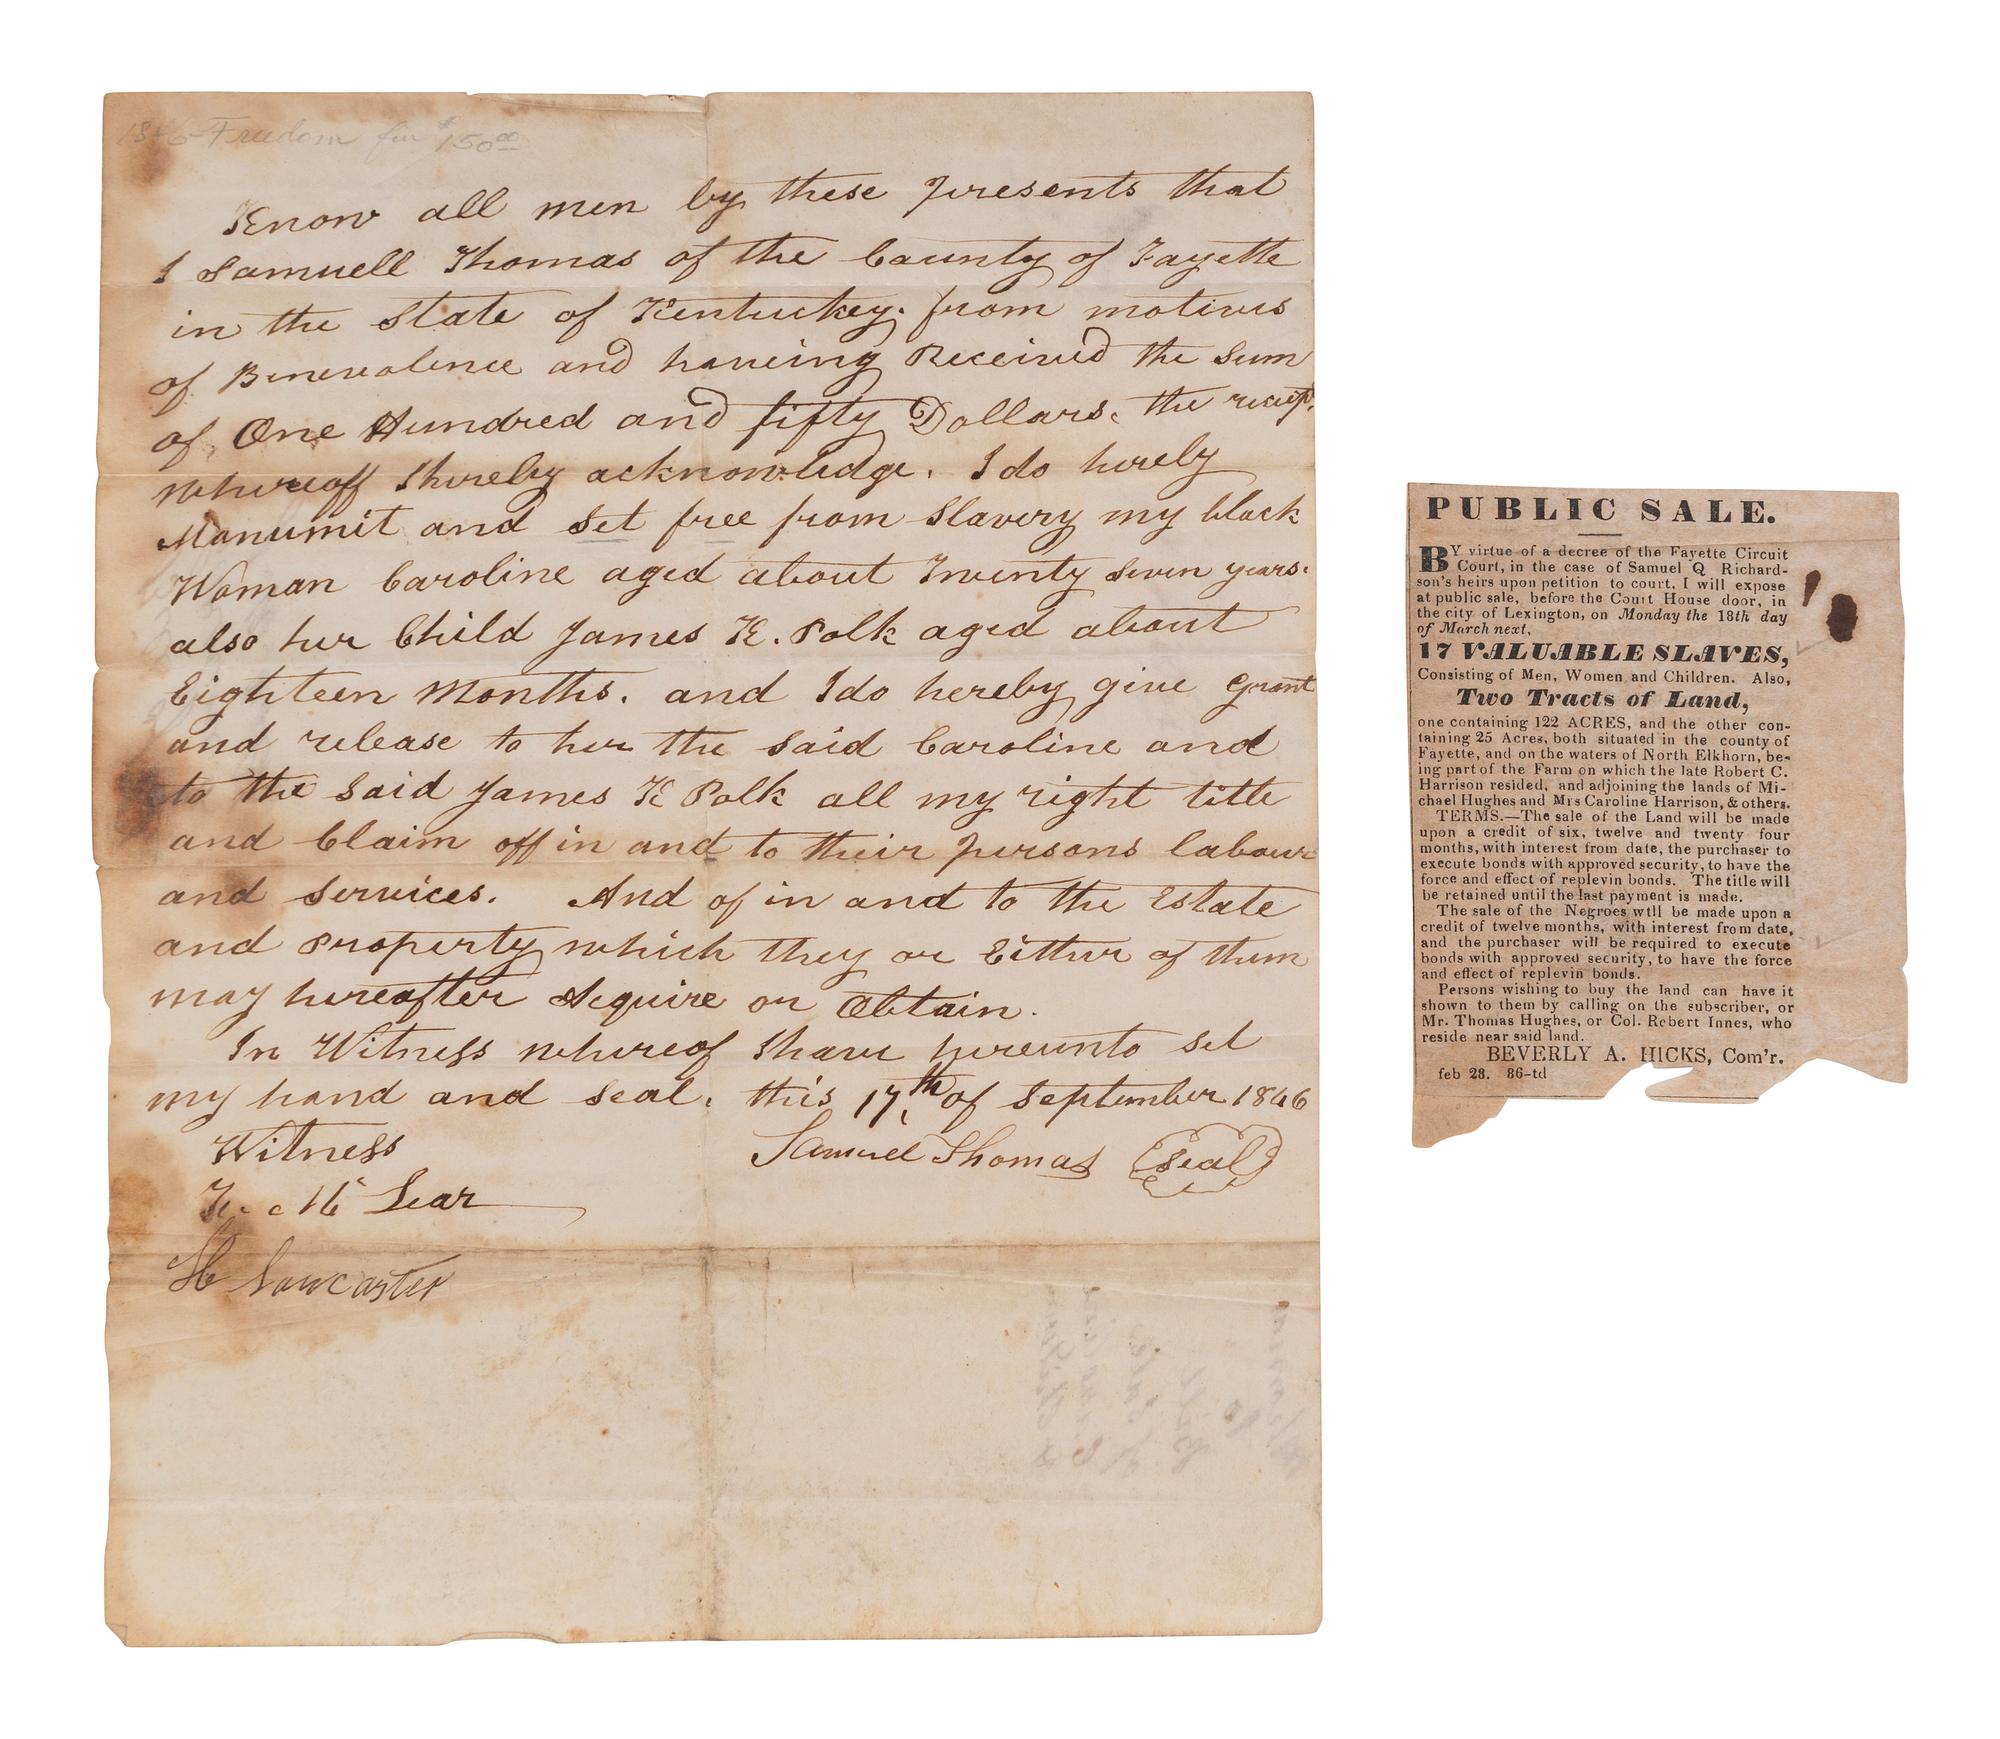 1846 Freedom for $150.00
Know all men by these presents that
I Samuell Thomas of the County of Fayette
in the State of Kentucky. from motives
of Benevolence and haveing Received the Sum
of One Hundred and fifty Dollars. the recipt
whereoff I hereby acknowledge. I do hereby
Manumit and Set free from Slavery my black
Woman Caroline aged about Twenty Seven years.
also her Child James K. Polk aged about
Eighteen Months. and I do hereby give grant
and release to her the said Caroline and
to the said James K Polk all my right title
and Claim off in and to their persons labour
and services. And of in and to the Estate
and Property which they or Either of them
may hereafter Acquire or Obtain.
In Witness whereof I have hereunto set
my hand and seal. this 17th of September 1846
Witness Samuel Thomas (seal)
Lear
Lancaster
PUBLIC SALE.
BY virtue of a decree of the Fayette Circuit
Court, in the case of Samuel Q Richard-
son's heirs upon petition to court, I will expose
at public sale, before the Court House door, in
the city of Lexington, on Monday the 18th day
of March next,
17 VALUABLE SLAVES,
Consisting of Men, Women and Children. Also,
Two Tracts of Land,
one containing 122 ACRES, and the other con-
taining 25 Acres, both situated in the county of
Fayette, and on the waters of North Elkhorn, be-
ing part of the Farm on which the late Robert C.
Harrison resided, and adjoining the lands of Mi-
chael Hughes and Mrs Caroline Harrison, & others.
TERMS.—The sale of the Land will be made
upon a credit of six, twelve and twenty four
months, with interest from date, the purchaser to
execute bonds with approved security, to have the
force and effect of replevin bonds. The title will
be retained until the last payment is made.
The sale of the Negroes wtll be made upon a
credit of twelve months, with interest from date,
and the purchaser will be required to execute
bonds with approved security, to have the force
and effect of replevin bonds.
Persons wishing to buy the land can have it
shown to them by calling on the subscriber, or
Mr. Thomas Hughes, or Col. Robert Innes, who
reside near said land.
BEVERLY A. HICKS, Com'r.
feb 23. 36-td